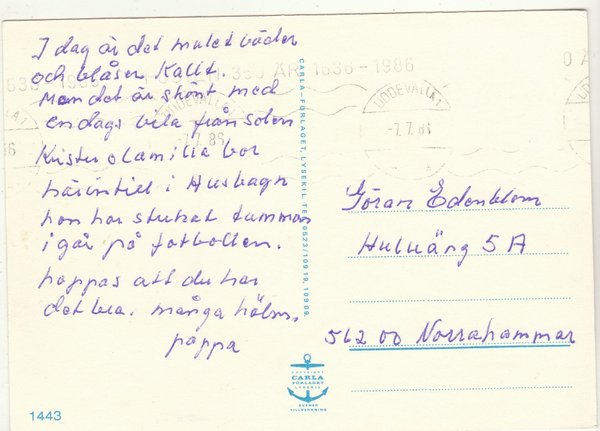 I dag är det mulet väder
och blåser Kallt.
Men det är skönt med
en dags vila från solen
Krister o lamilia bor
härintill i Husvagn
han har stukat tummen
igår på fotbollen.
hoppas att du har
det bra. många hälsn.
pappa
1443
CARLA-FÖRLAGET, LYSEKIL. TEL. 0523/10919, 10909.
COPYRIGHT
CARLA
FÖRLAGET
LYSEKIL
SVENSK
TILLVERKNING
350 ÅR 1636-1986
UDDEVALLA 1
-7.7.86
Göran Edenblom
Huluäng 5 A
562 00 Norrahammar